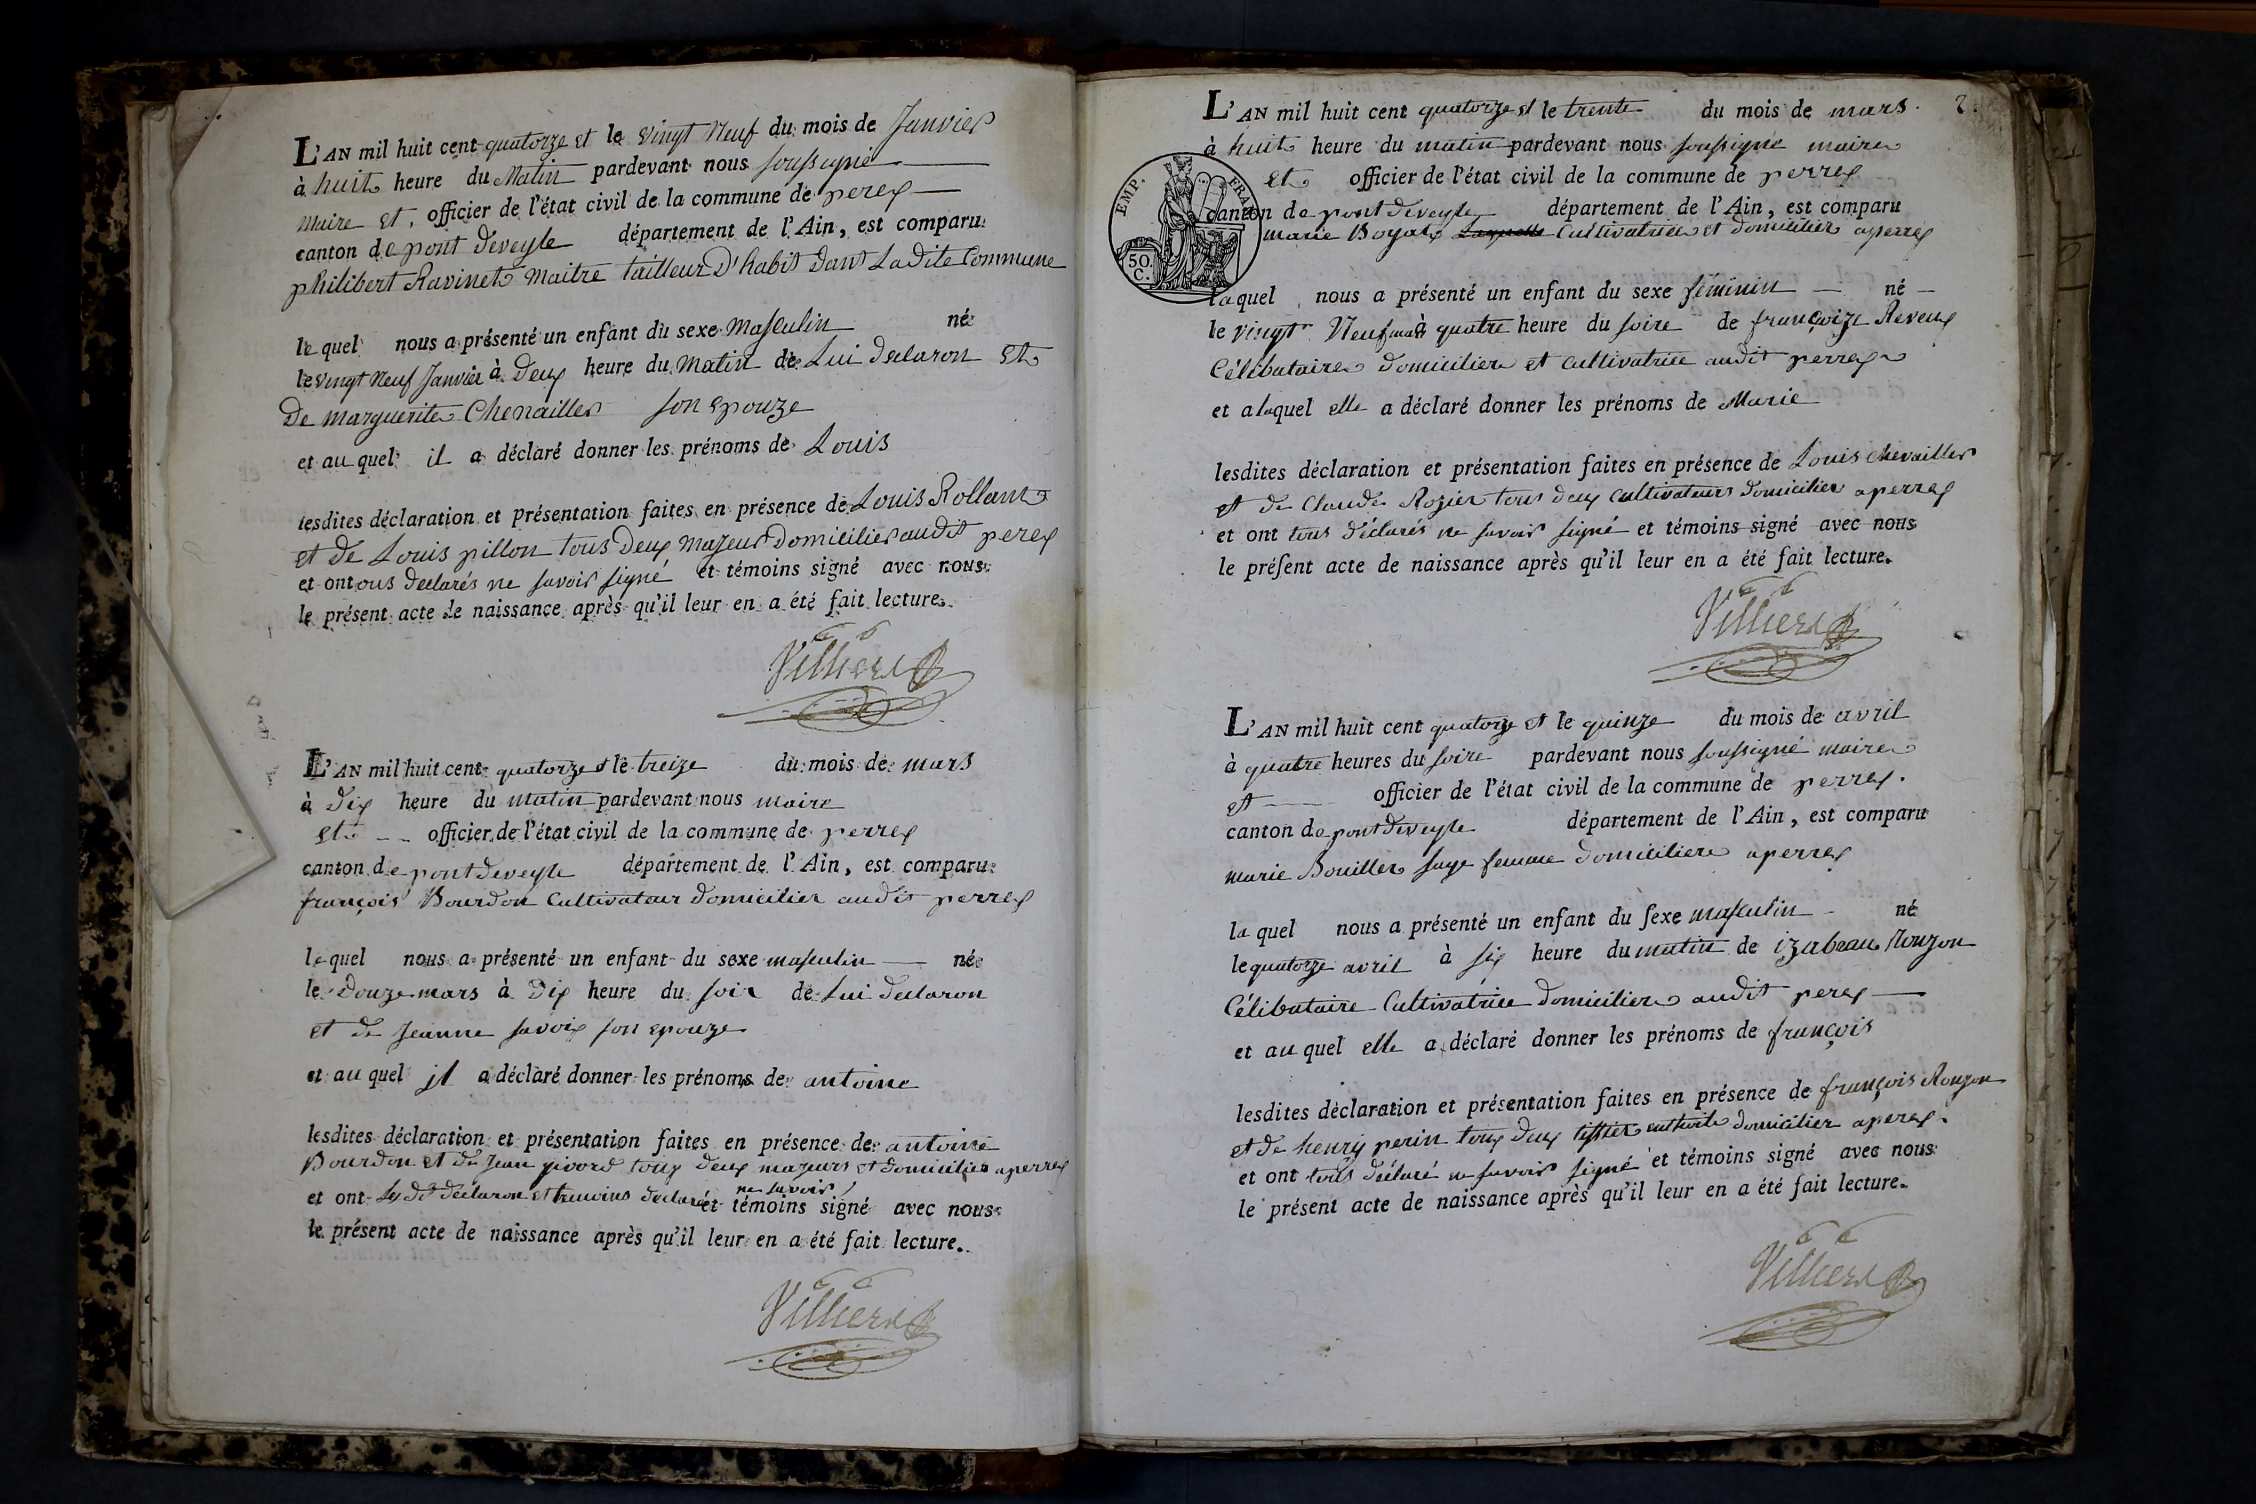 L'AN mil huit cent quatorze et le vingt Neuf du mois de Janvier
à huit heure du Matin pardevant nous soussigné
Maire et officier de l'état civil de la commune de perex
canton de pont deveyle département de l'Ain, est comparu
philibert Ravinet Maitre tailleur D'habit dans Ladite Commune
le quel nous a présenté un enfant du sexe Masculin né
le vingt Neuf Janvier à Deux heure du Matin de Lui declaron Et
De marguerite Chenailler son epouze
et au quel il a déclaré donner les prénoms de Louis
lesdites déclaration et présentation faites en présence de Louis Rolland
et de Louis pillon tous Deux Majeur Domicilier audit perex
et ont ous declarés ne savoir signé et témoins signé avec nous
le présent acte de naissance après qu'il leur en a été fait lecture.
Villiers
L'AN mil huit cent quatorze et le treize du mois de mars
à dix heure du matin pardevant nous maire
et officier de l'état civil de la commune de perrex
canton de pont deveyle département de l'Ain, est comparu
françois Bourdon Cultivateur domicilier audit perrex
le quel nous a présenté un enfant du sexe masculin né
le Douze mars à Dix heure du soir de Lui declaron
et de Jeanne savoix son epouze
et au quel il a déclaré donner les prénoms de antoine
lesdites déclaration et présentation faites en présence de antoine
Bourdon et de Jean pivord toux deux majeurs et domicilier a perrex
ne savoir
et ont Les dt declaron et temoins declaré et témoins signé avec nous
le présent acte de naissance après qu'il leur en a été fait lecture.
Villiers
2.
L'AN mil huit cent quatorze et le trente du mois de mars.
à huit heure du matin pardevant nous soussigné maire
et officier de l'état civil de la commune de perrex
canton de pont deveyle département de l'Ain, est comparu
EMP. FRAN.
50. C.
marie Boyat laquelle Cultivatrice et domicilier a perrex
la quel nous a présenté un enfant du sexe féminin né
le vingt Neuf mars à quatre heure du soire de françoize Reveux
Célibataire domiciliere et cultivatrice audit perrex
et a laquel elle a déclaré donner les prénoms de Marie
lesdites déclaration et présentation faites en présence de Louis chevailler
et de Claude Rozier tous deux cultivateurs domicilier a perrex
et ont tous déclarés ne savoir signé et témoins signé avec nous
le présent acte de naissance après qu'il leur en a été fait lecture.
Villiers
L'AN mil huit cent quatorze et le quinze du mois de avril
à quatre heures du soire pardevant nous soussigné maire
et officier de l'état civil de la commune de perrex.
canton de pont deveyle département de l'Ain, est comparu
marie Bouiller sage femme domiciliere a perrex
la quel nous a présenté un enfant du sexe masculin né
le quatorze avril à six heure du matin de izabeau Rouzon
Célibataire Cultivatrice domiciliere audit perex
et au quel elle a déclaré donner les prénoms de françois
lesdites déclaration et présentation faites en présence de françois Rouzon
et de henry perin toux deux domicilier a perex.
et ont tous déclaré ne savoir signé et témoins signé avec nous
le présent acte de naissance après qu'il leur en a été fait lecture.
Villiers